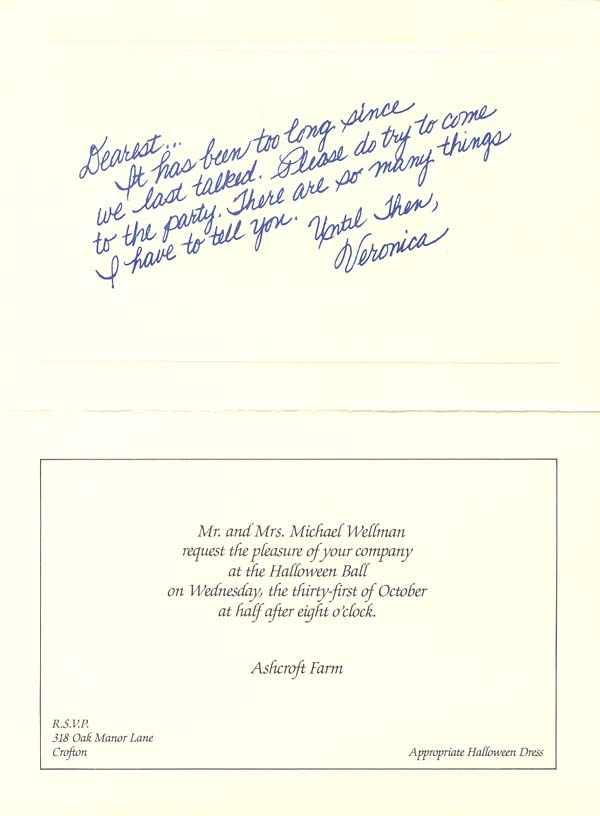 Dearest...
It has been too long since
we last talked. Please do try to come
to the party. There are so many things
I have to tell you.
Until Then,
Veronica
Mr. and Mrs. Michael Wellman
request the pleasure of your company
at the Halloween Ball
on Wednesday, the thirty-first of October
at half after eight o'clock.
Ashcroft Farm
R.S.V.P.
318 Oak Manor Lane
Crofton
Appropriate Halloween Dress